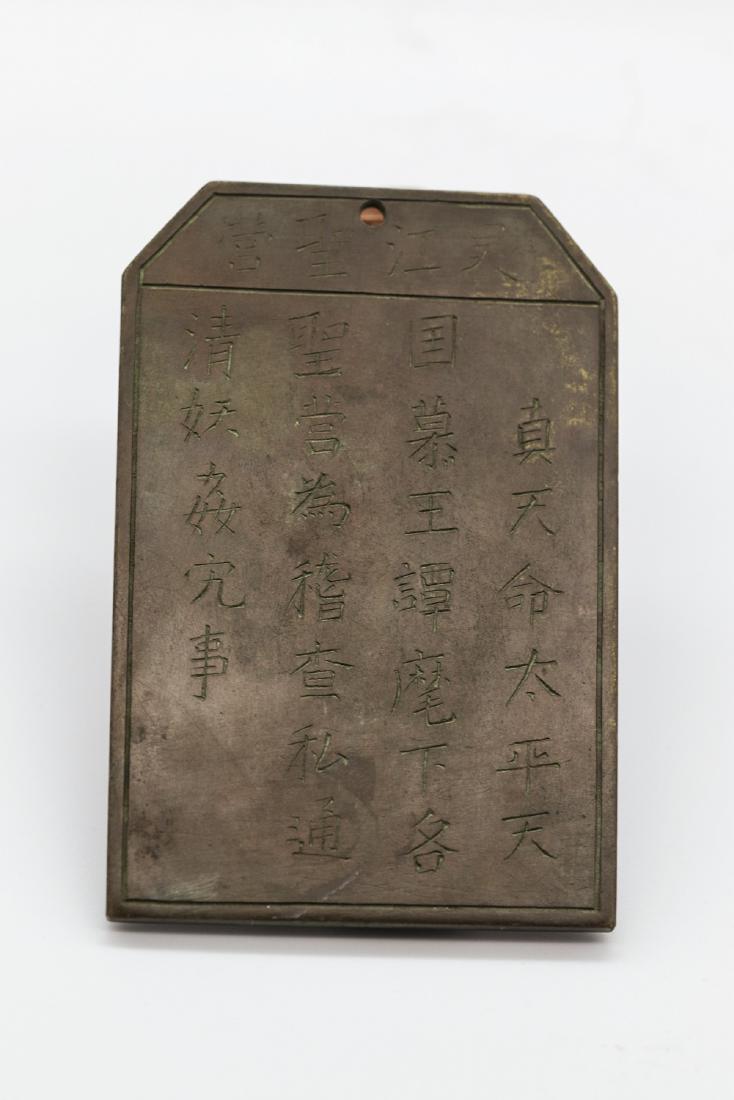 天江聖營
真天命太平天
囯慕王譚麾下各
聖營為稽查私通
清妖姦宄事